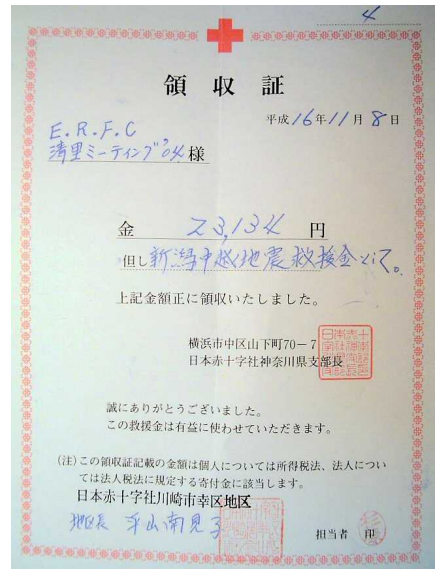 4
領収証
平成16年11月8日
E.R.F.C
清里ミーティング'04 様
金 23,134 円
但し 新潟中越地震救援金として。
上記金額正に領収いたしました。
横浜市中区山下町70-7
日本赤十字社神奈川県支部長
誠にありがとうございました。
この救援金は有益に使わせていただきます。
(注)この領収証記載の金額は個人については所得税法、法人につい
ては法人税法に規定する寄付金に該当します。
日本赤十字社川崎市幸区地区
地区長
担当者 印